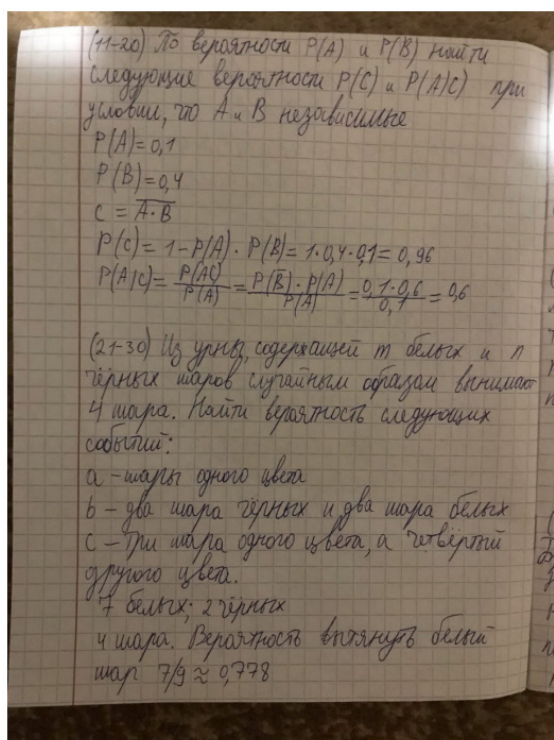 (11-20) По вероятности P(A) и P(B) найти
следующие вероятности P(C) и P(A|C) при
условии, что A и B независимые
P(A)=0,1
P(B)=0,4
C = \overline{A·B}
P(C)= 1-P(A)·P(B)=1·0,4·0,1=0,96
P(A|C)= P(AC)/P(A) = P(B)·P(A)/P(A) = 0,1·0,6/0,1 = 0,6
(21-30) Из урны, содержащей m белых и n
чёрных шаров случайным образом вынимают
4 шара. Найти вероятность следующих
событий:
a - шары одного цвета
b - два шара чёрных и два шара белых
c - Три шара одного цвета, а четвёртый
другого цвета.
7 белых; 2 чёрных
4 шара. Вероятность вытянуть белый
шар 7/9 ≈ 0,778